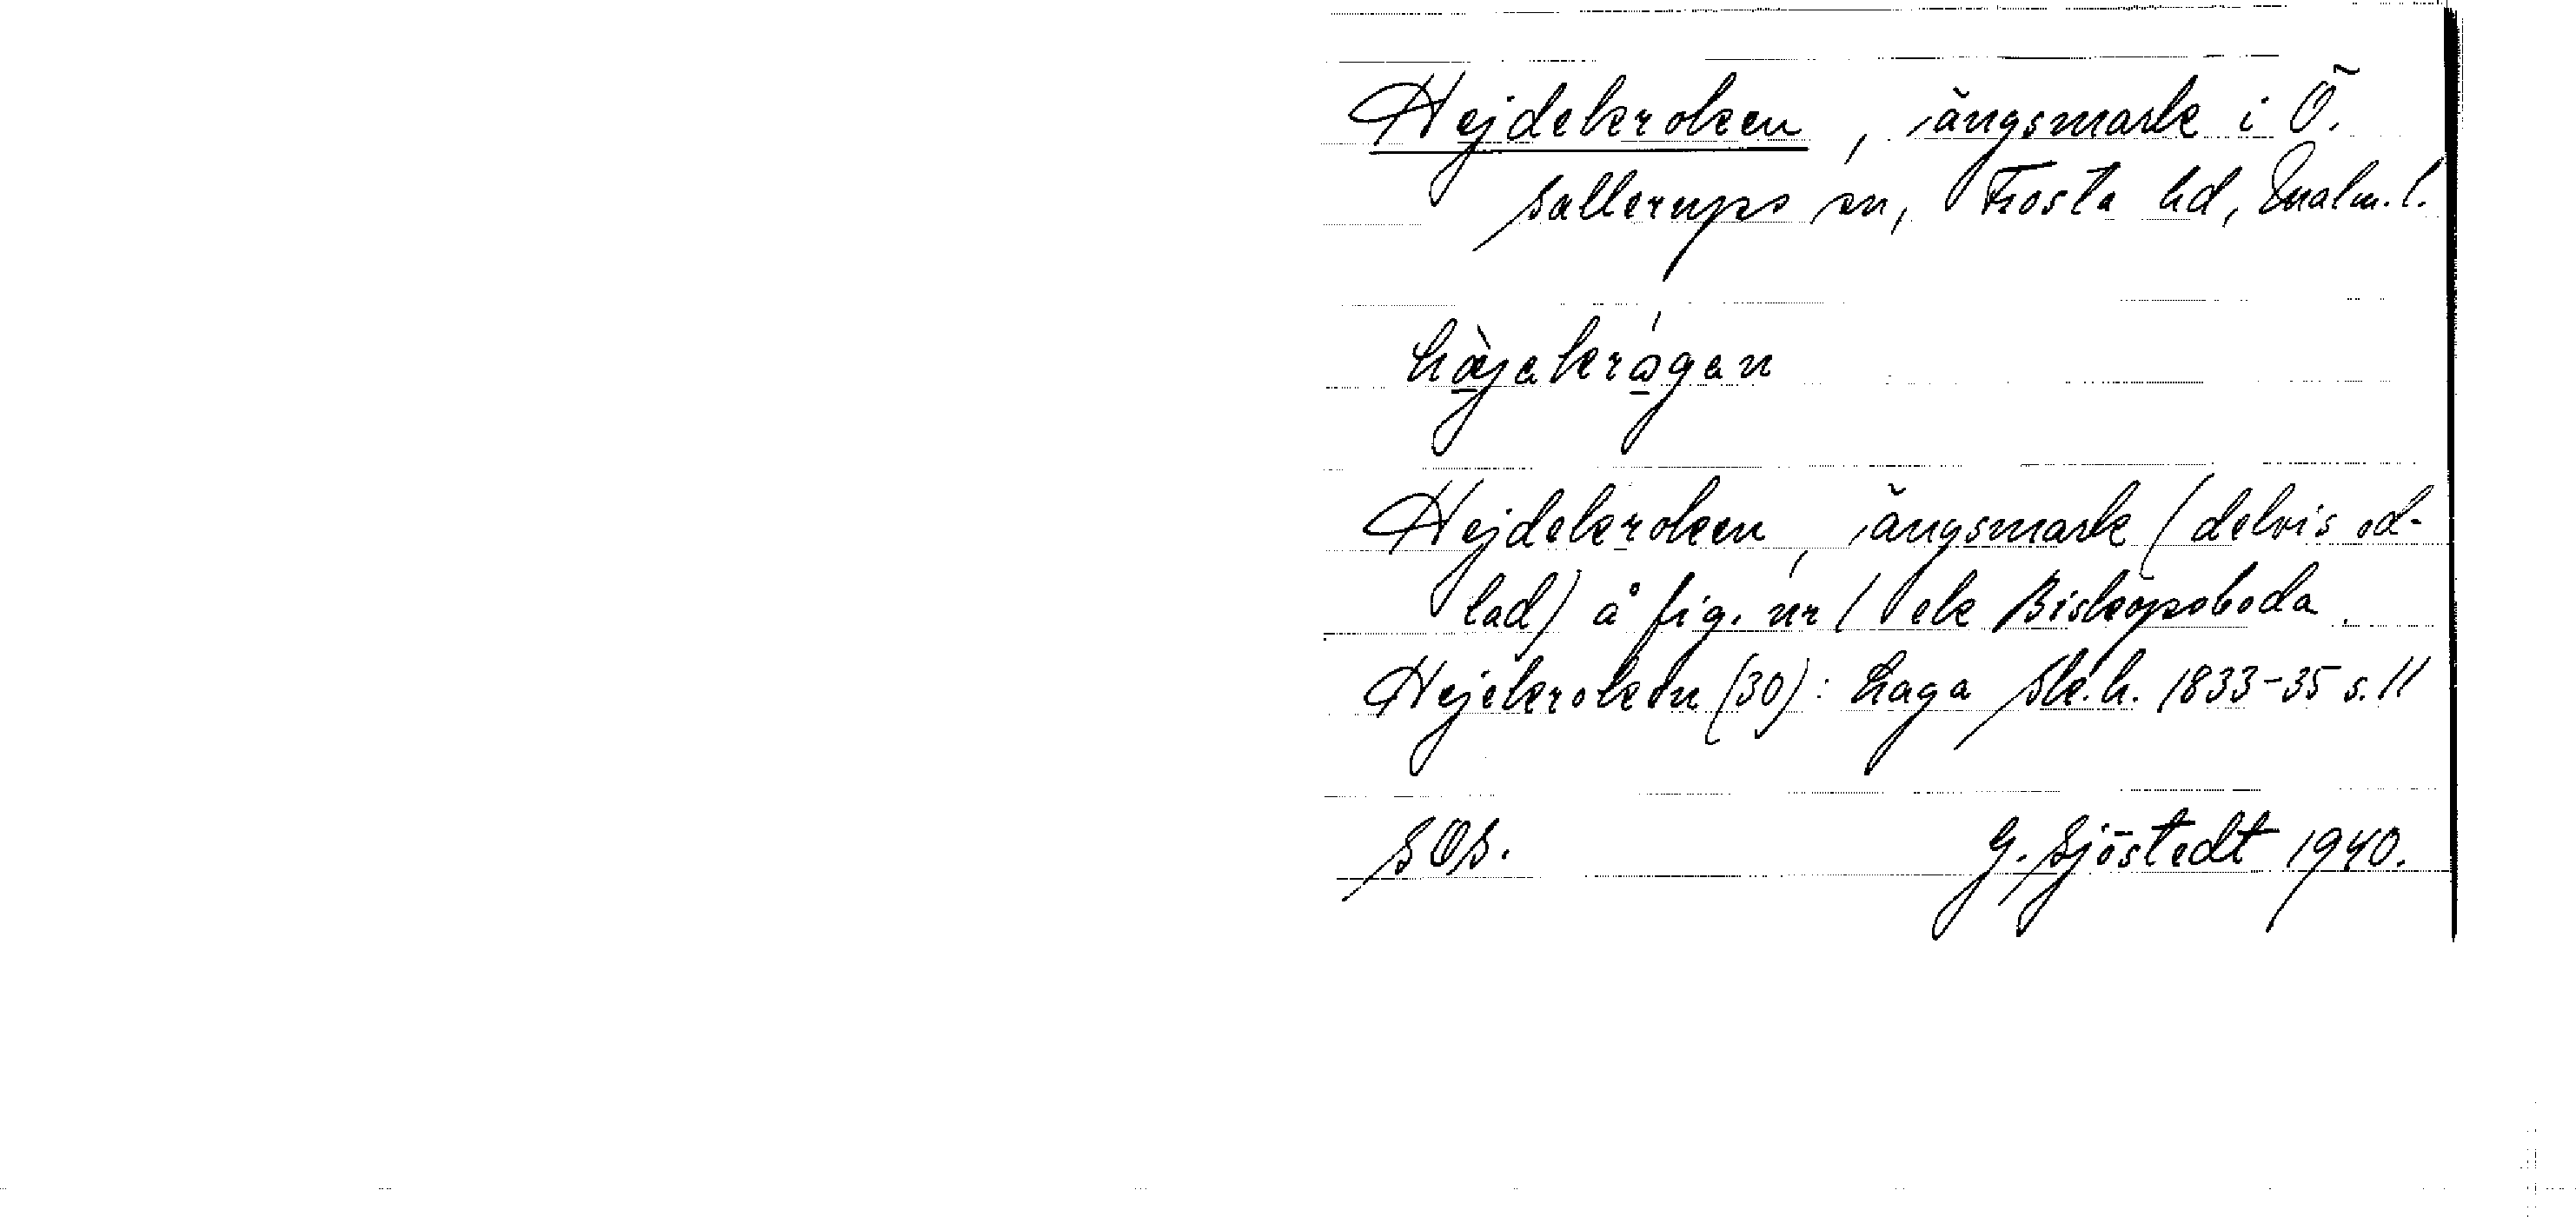 Hejdekroken, ängsmark i Ö.
Sallerups sn, Frosta hd, Malm. l.
hàjekrågen
Hejdekroken, ängsmark (delvis od-
lad) å fig. nr 1 ek Biskopsboda.
Hejekroken (30): Laga Sk.h. 1833-35 s. 11
SOS. G. Sjöstedt 1940.